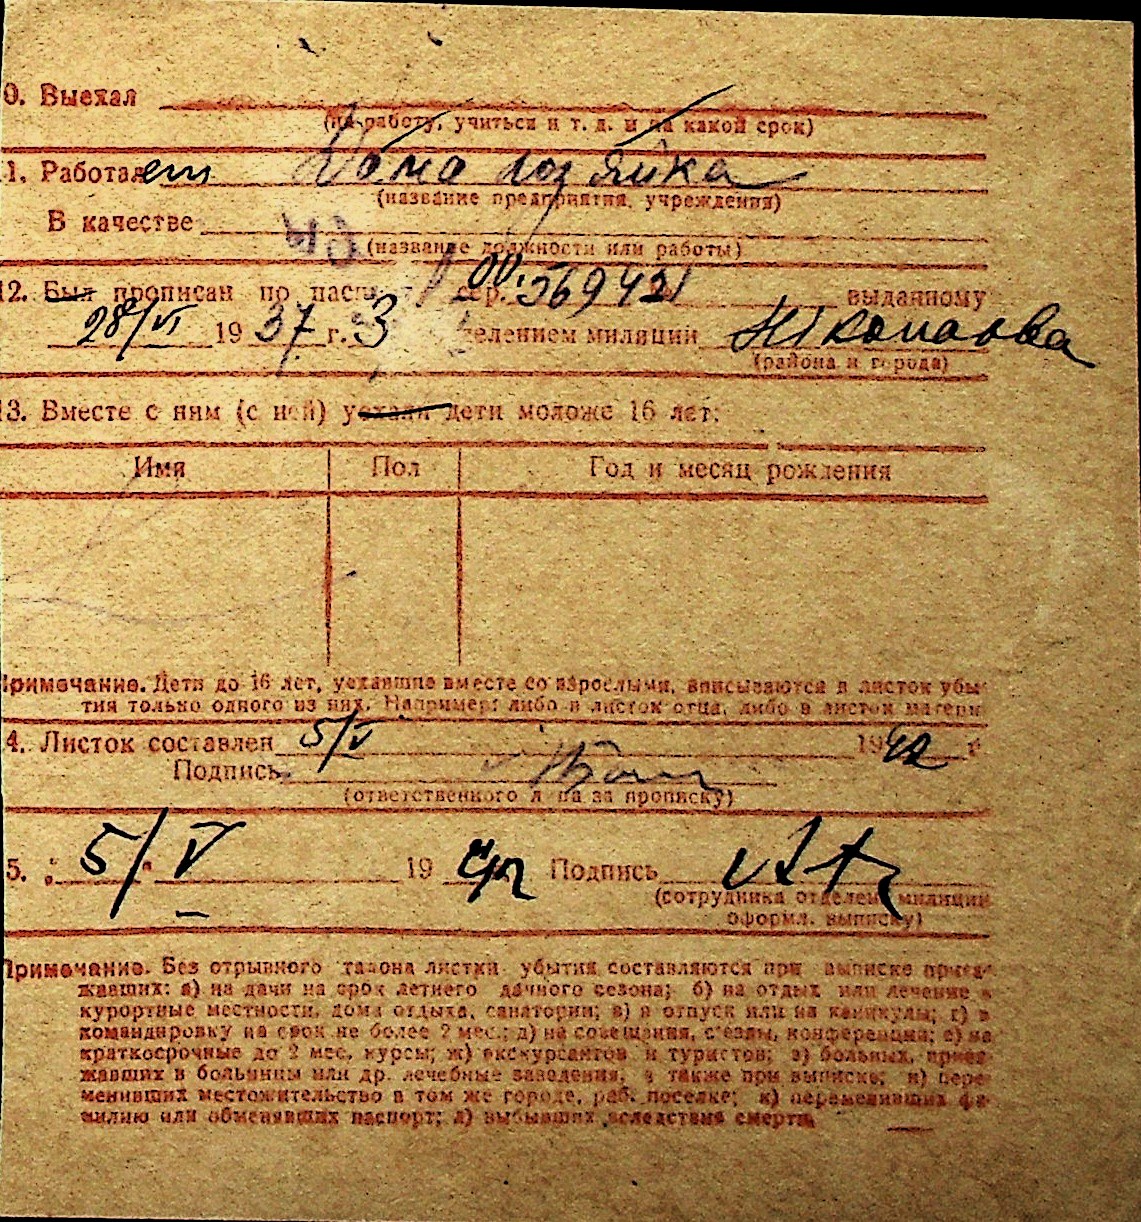 0. Выехал
(на работу, учиться и т. д. и на какой срок)
1. Работает Домохозяйка
(название предприятия, учреждения)
В качестве
(название должности или работы)
12. Был прописан по сер. 569421 выданному
28/VI 1937 г. 3 делением милиции
(района и города)
13. Вместе с ним (с ней) уехали дети моложе 16 лет:
Имя Пол Год и месяц рождения
Примечание. Дети до 16 лет, уехавшие вместе со взрослыми, вписываются в листок убы-
тия только одного из них. Например: либо в листок отца, либо в листок матери
4. Листок составлен 5/V 1942 г
Подпись
(ответственного лица за прописку)
5. „ 5/V “ 1942 Подпись
(сотрудника отделен. милиции
оформл. выписку)
Примечание. Без отрывного талона листки убытия составляются при выписке приез-
жавших: а) на дачи на срок летнего дачного сезона; б) на отдых или лечение в
курортные местности, дома отдыха, санатории; в) в отпуск или на каникулы; г) в
командировку на срок не более 2 мес.; д) на совещания, с'езды, конференции; е) на
краткосрочные до 2 мес. курсы; ж) экскурсантов и туристов; з) больных, приез-
жавших в больницы или др. лечебные заведения, а также при выписке; и) пере-
менивших местожительство в том же городе, раб. поселке; к) переменивших фа-
милию или обменявших паспорт; л) выбывших вследствие смерти